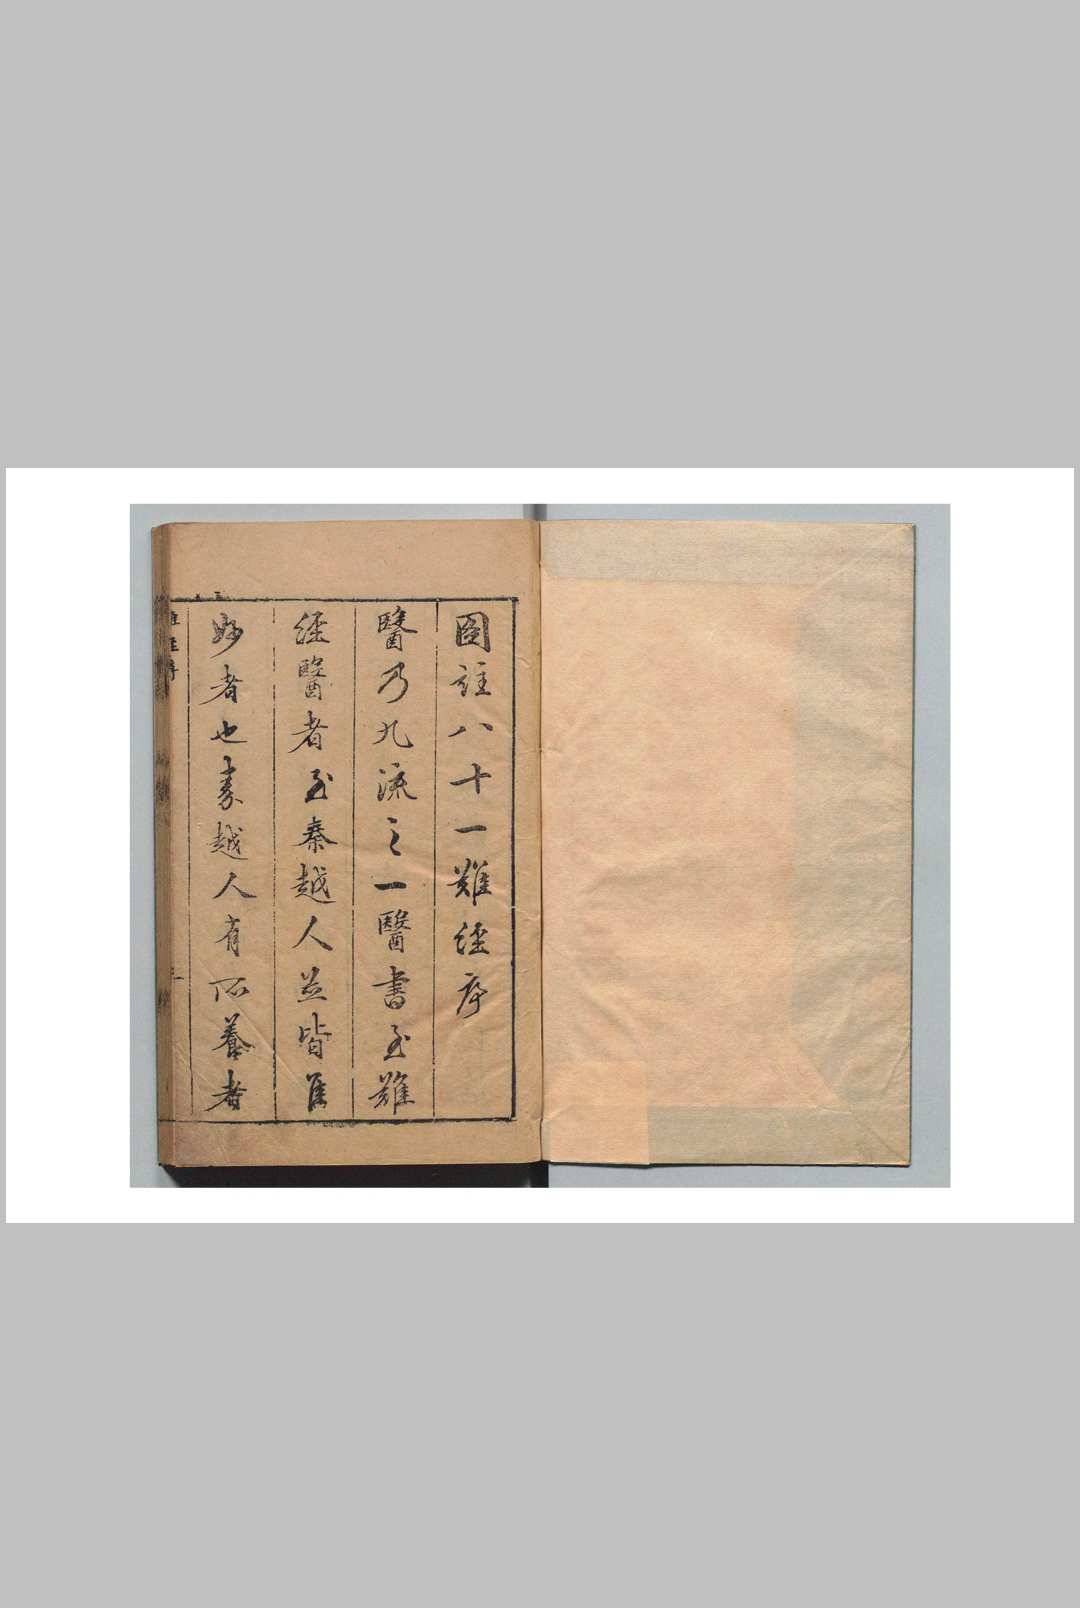 圖註八十一難經序
醫乃九流之一醫書至難
經醫者至秦越人並皆
妙者也越人有所養者
難經序